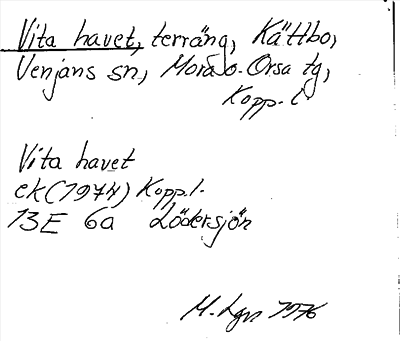 Vita havet, terräng, Kättbo,
Venjans sn, Mora o. Orsa tg,
Kopp. l
Vita havet
ek (1974) Kopp. l.
13E 6a Lödersjön
M. Lgn 1976